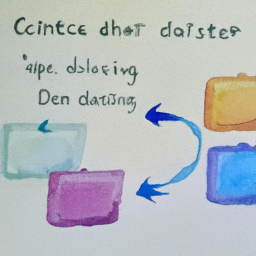 Ccintce dhət daister
'aipe. dsloeivg
Den datiug